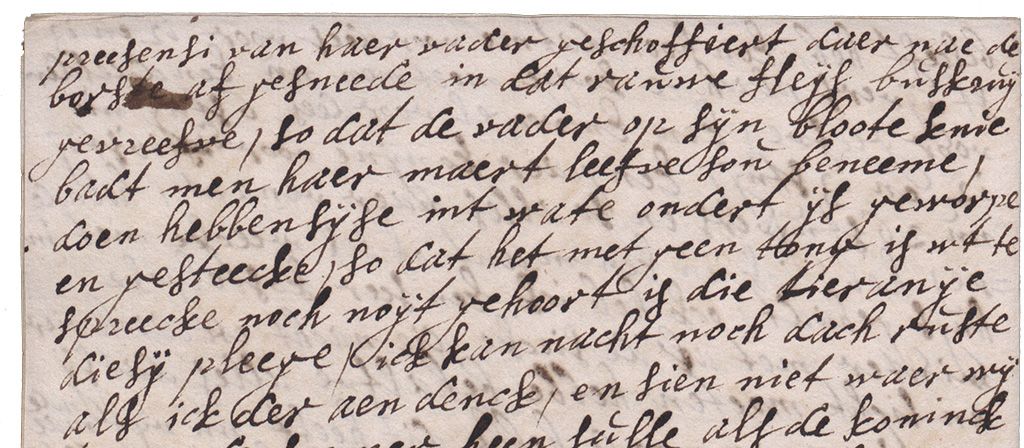 preesensi van haer vader geschoffiert daer nae de
borste af gesneede in dat rauwe fleys buskruy
gevreefve, so dat de vader op syn bloote knie
badt men haer maert leefve sou beneeme,
doen hebben syse int wate ondert ys geworpe
en gesteecke, so dat het met geen tong is wt te
spreecke noch noyt gehoort is die tieranye
die sy pleege, ick kan nacht noch dach ruste
als ick der aen denck, en sien niet waer wy
heen sulle als de koninck